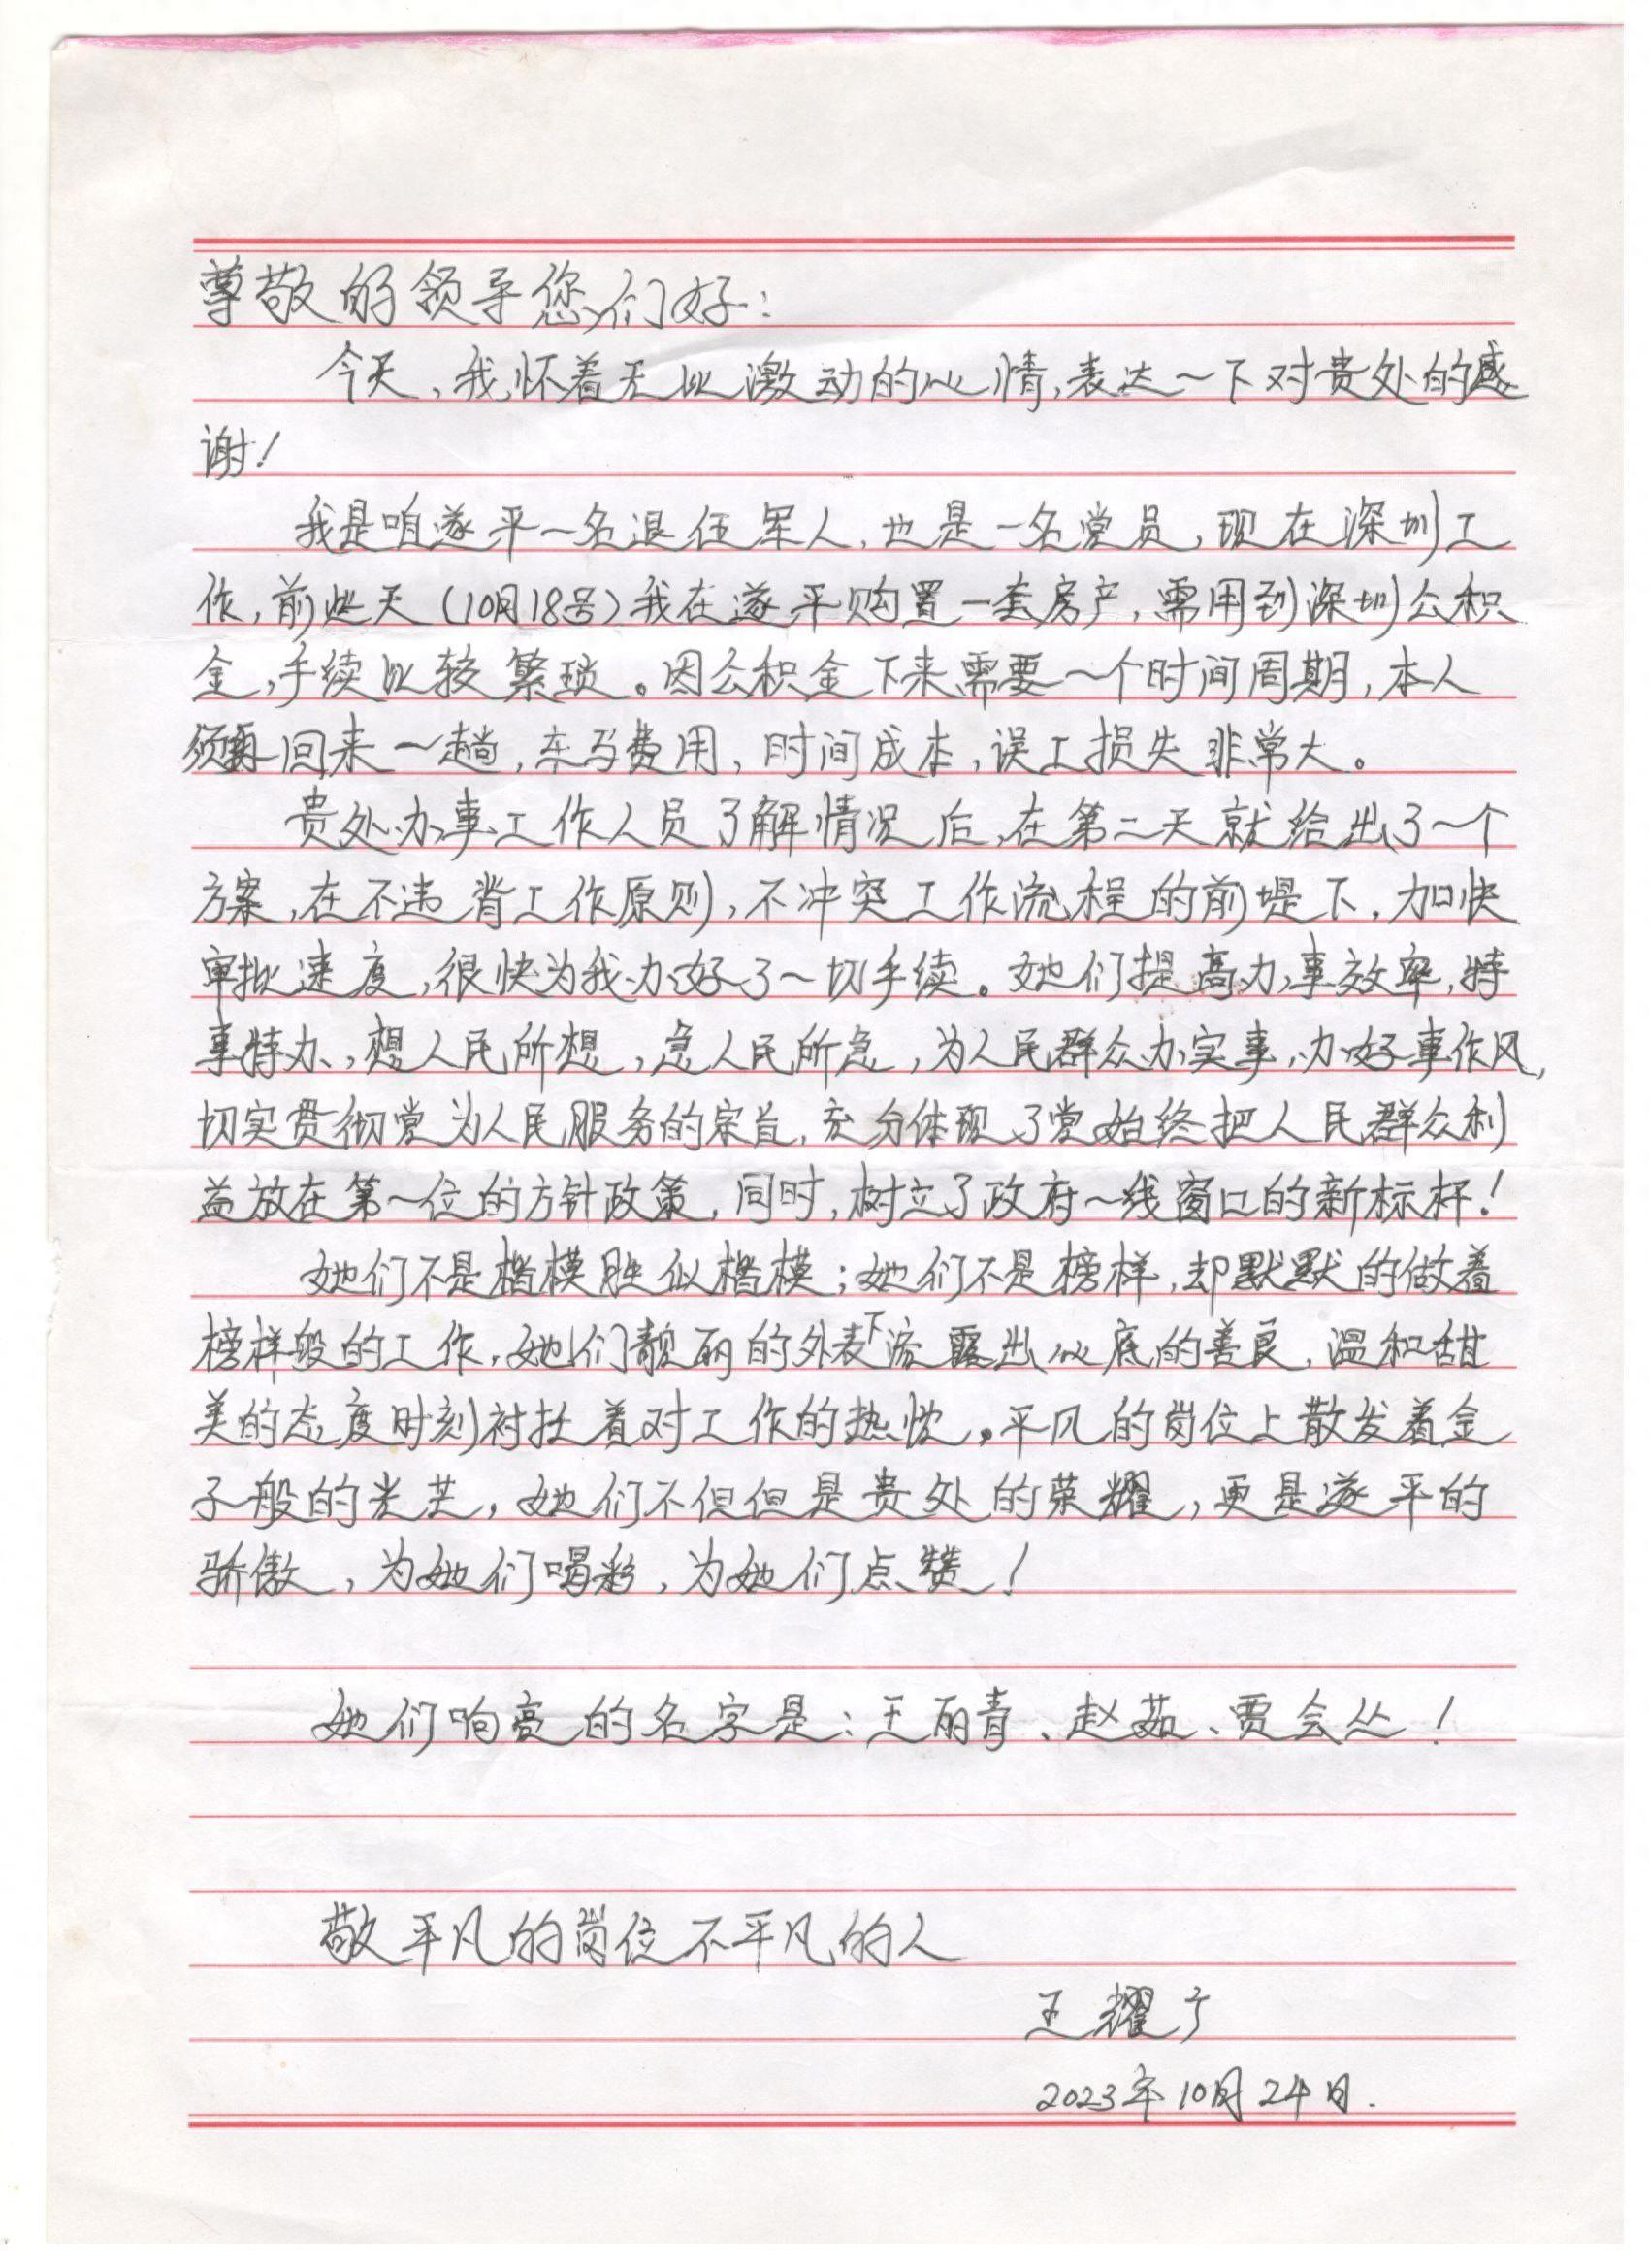 尊敬的领导您们好：
今天，我怀着无比激动的心情，表达一下对贵处的感
谢！
我是咱遂平一名退伍军人，也是一名党员，现在深圳工
作，前些天（10月18号）我在遂平购置一套房产，需用到深圳公积
金，手续比较繁琐。因公积金下来需要一个时间周期，本人
须再回来一趟，车马费用，时间成本，误工损失非常大。
贵处办事工作人员了解情况后，在第二天就给出了一个
方案，在不违背工作原则，不冲突工作流程的前堤下，加快
审批速度，很快为我办好了一切手续。她们提高办事效率，特
事特办，想人民所想，急人民所急，为人民群众办实事，办好事作风，
切实贯彻党为人民服务的宗旨，充分体现了党始终把人民群众利
益放在第一位的方针政策，同时，树立了政府一线窗口的新标杆！
她们不是楷模胜似楷模；她们不是榜样，却默默的做着
榜样般的工作，她们靓丽的外表下流露出心底的善良，温和甜
美的态度时刻衬托着对工作的热忱。平凡的岗位上散发着金
子般的光芒，她们不但但是贵处的荣耀，更是遂平的
骄傲，为她们喝彩，为她们点赞！
她们响亮的名字是：王丽青、赵茹、贾会丛！
敬平凡的岗位不平凡的人
王耀宁
2023年10月24日.